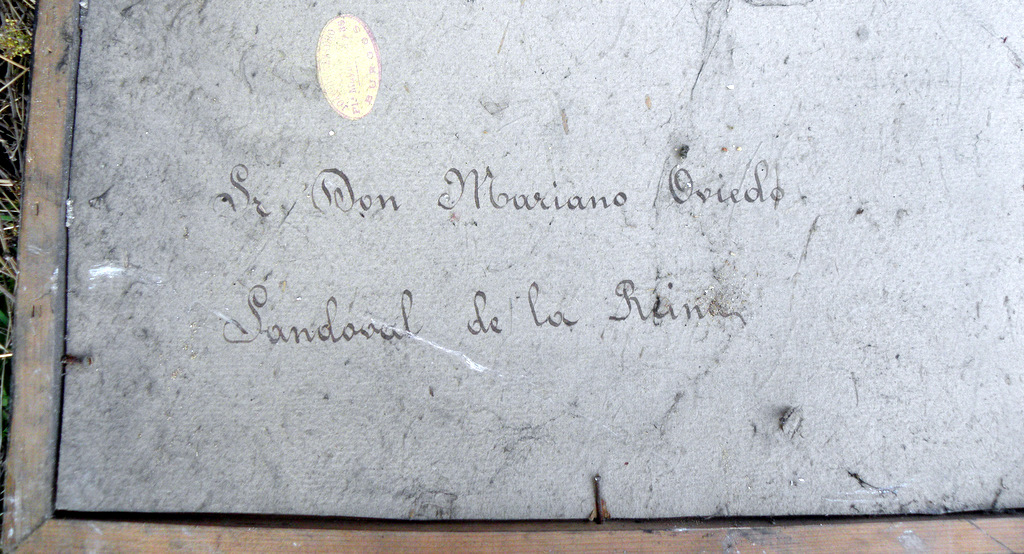 Sr. Don Mariano Oviedo.
Sandoval de la Reina
BURGOS